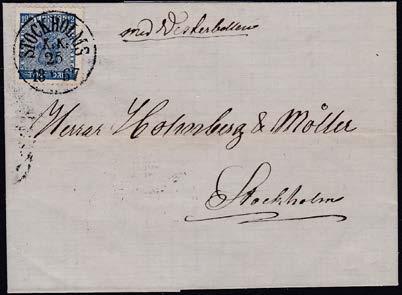 STOCKHOLMS
K.K.
25
18 67
med Vesterbotten
Herrar Holmberg & Möller
Stockholm